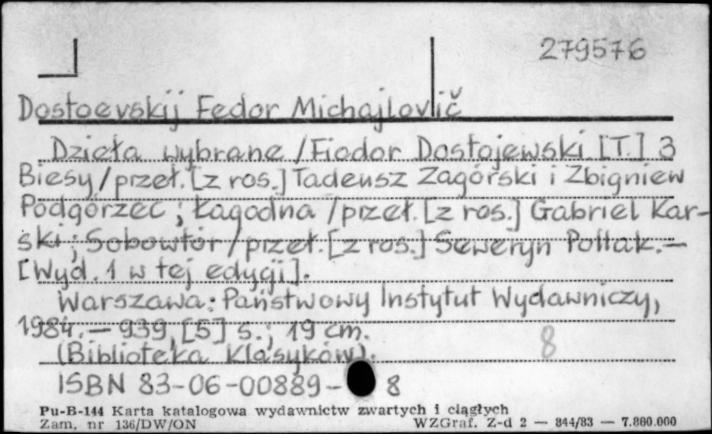 279576
Dostoevskij Fedor Michajlovič
Dzieła wybrane / Fiodor Dostojewski [T.] 3
Biesy / przeł. [z ros.] Tadeusz Zagórski i Zbigniew
Podgórzec ; Łagodna / przeł. [z ros.] Gabriel Kar-
ski ; Sobowtór / przeł. [z ros.] Seweryn Pollak. —
[Wyd. 1 w tej edycji].
Warszawa : Państwowy Instytut Wydawniczy,
1984. — 939, [5] s. ; 19 cm.
(Biblioteka Klasyków). 8
ISBN 83-06-00889-8
Pu-B-144 Karta katalogowa wydawnictw zwartych i ciągłych
Zam. nr 136/DW/ON WZGraf. Z-d 2 — 844/83 — 7.800.000